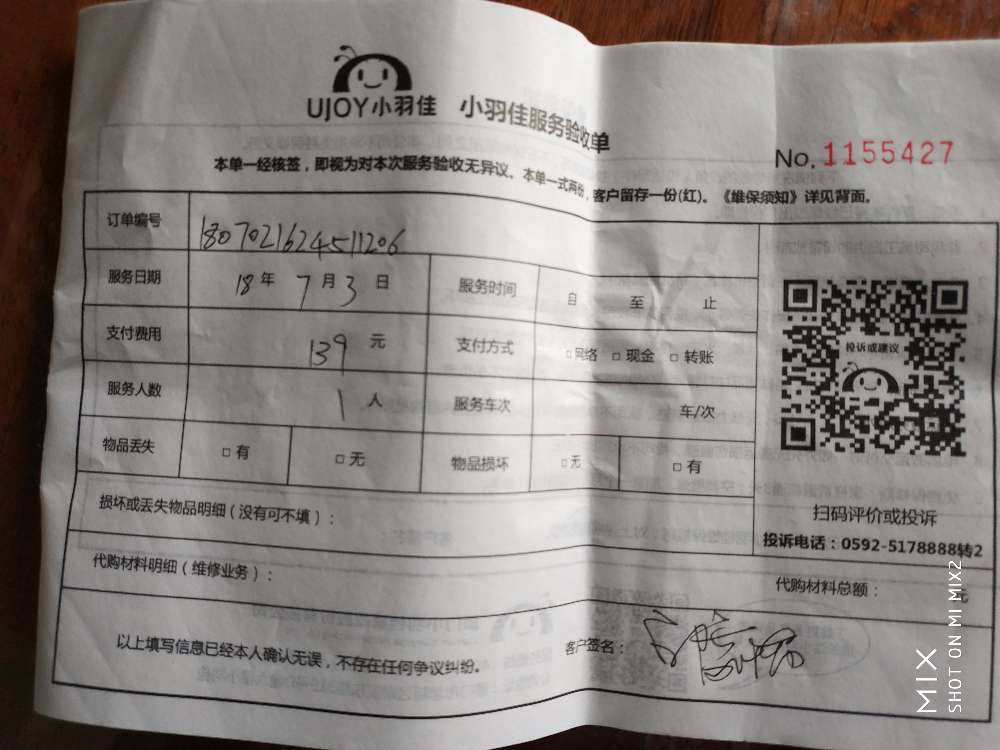 UJOY小羽佳 小羽佳服务验收单
No. 1155427
本单一经核签，即视为对本次服务验收无异议。本单一式两份，客户留存一份(红)。《维保须知》详见背面。
订单编号 1807021624511206
服务日期 18年 7月3日 服务时间 自 至 止
支付费用 139 元 支付方式 □网络 □现金 □转账
服务人数 1人 服务车次 车/次
物品丢失 □有 □无 物品损坏 □无 □有
投诉或建议
扫码评价或投诉
投诉电话：0592-5178888转2
损坏或丢失物品明细（没有可不填）：
代购材料明细（维修业务）： 代购材料总额： 元
以上填写信息已经本人确认无误，不存在任何争议纠纷。 客户签名：
MIX
SHOT ON MI MIX2